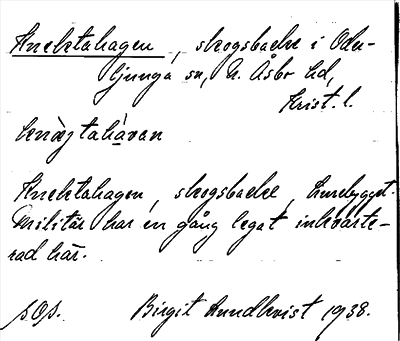 Knektahagen, skogsbacke i Oder-
ljunga sn, N. Åsbo hd,
Krist. l.
Knektahagen, skogsbacke, Lurebygget.
Militär har en gång legat inkvarte-
rad här.
s.o.s. Birgit Lundkvist 1938.